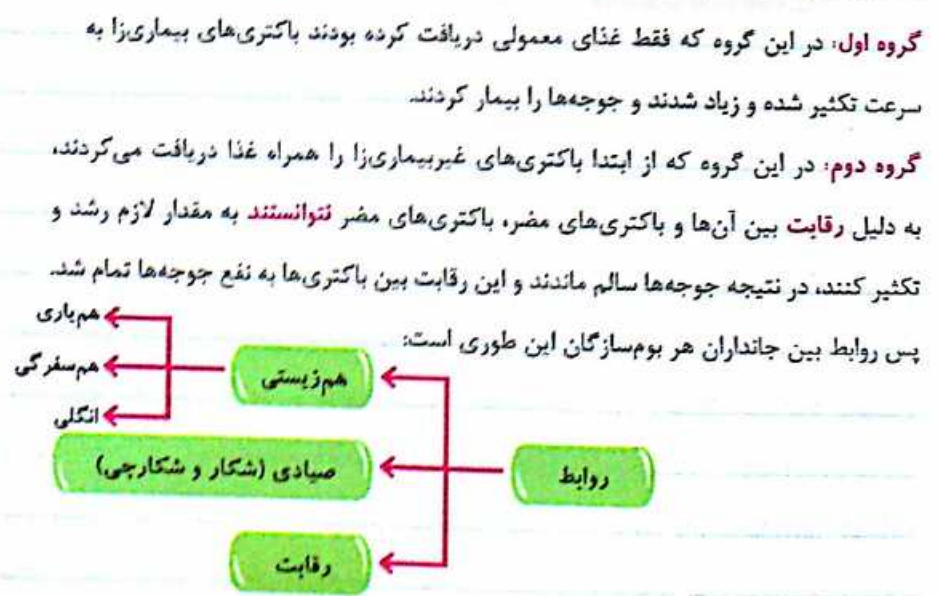 گروه اول: در این گروه که فقط غذای معمولی دریافت کرده بودند باکتری‌های بیماری‌زا به
سرعت تکثیر شده و زیاد شدند و جوجه‌ها را بیمار کردند.
گروه دوم: در این گروه که از ابتدا باکتری‌های غیربیماری‌زا را همراه غذا دریافت می‌کردند،
به دلیل رقابت بین آن‌ها و باکتری‌های مضر، باکتری‌های مضر نتوانستند به مقدار لازم رشد و
تکثیر کنند، در نتیجه جوجه‌ها سالم ماندند و این رقابت بین باکتری‌ها به نفع جوجه‌ها تمام شد.
پس روابط بین جانداران هر بوم‌سازگان این طوری است:
روابط
هم‌زیستی
هم‌یاری
هم‌سفرگی
انگلی
صیادی (شکار و شکارچی)
رقابت